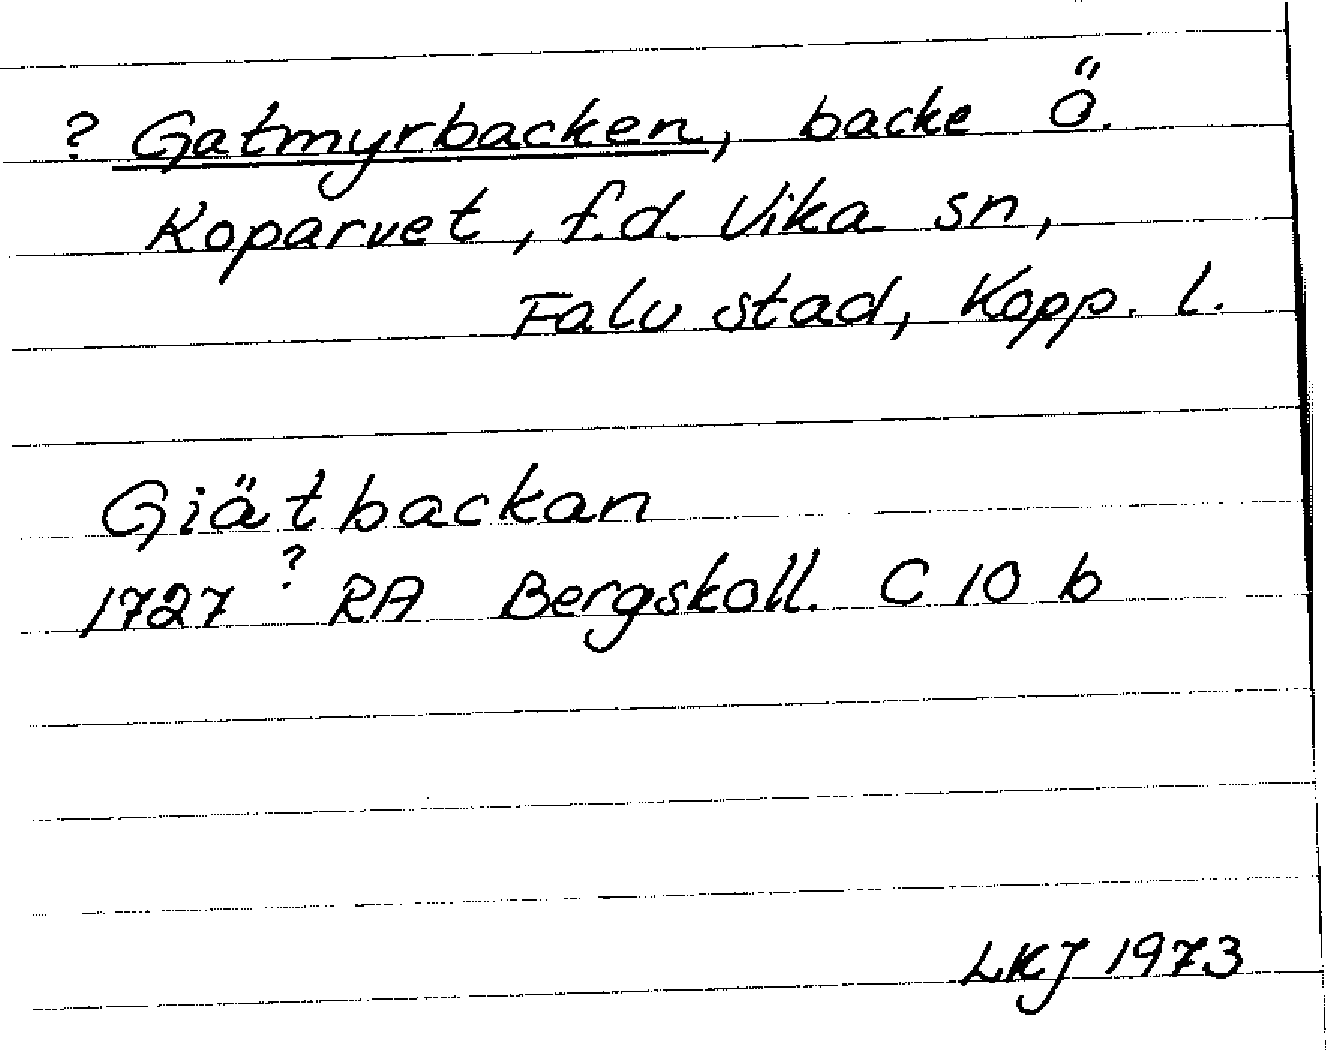 ? Gatmyrbacken, backe ö.
Koparvet, f.d. Vika sn,
Falu stad, Kopp. l.
Giätbackan
1727 ? RA Bergskoll. C 10 b
LKJ 1973